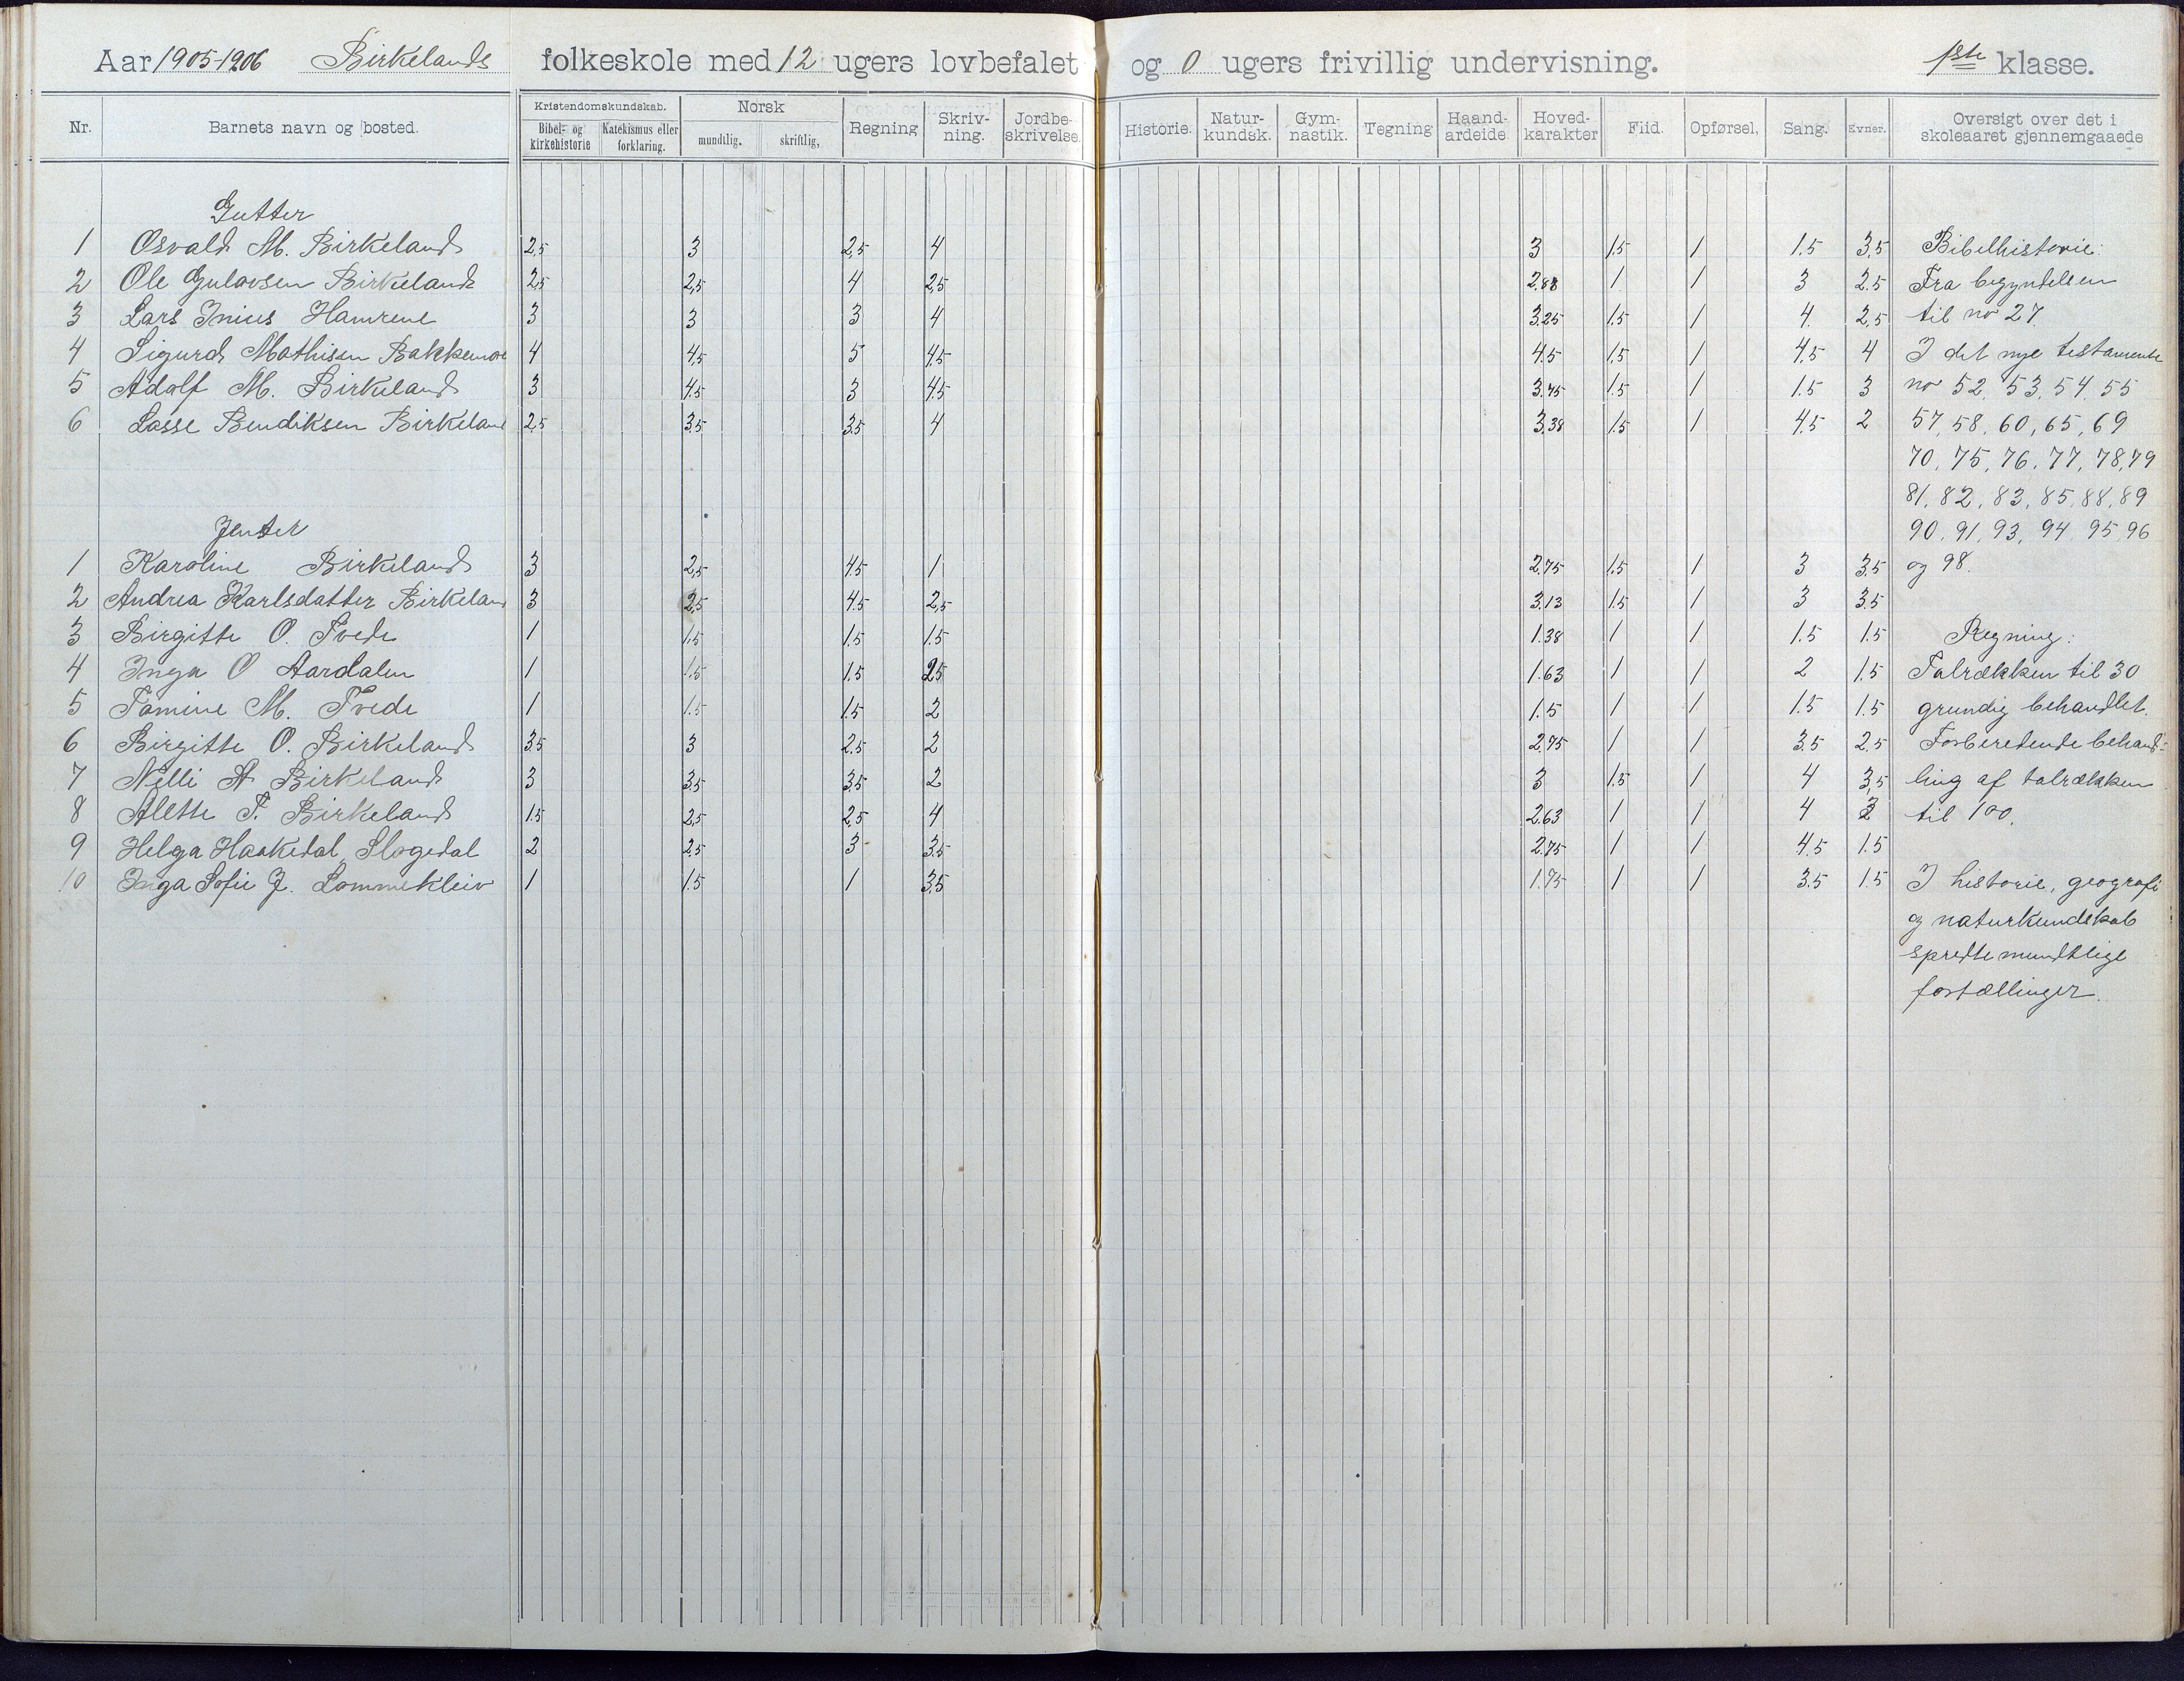 Aar 1905-1906 Birkelands folkeskole med 12 ugers lovbefalet og 0 ugers frivillig undervisning. 1ste klasse.
Nr. Barnets navn og bosted. Kristendomskundskab. Bibel- og kirkehistorie Katekismus eller forklaring. Norsk mundtlig, skriftlig, Regning Skriv-ning. Jordbe-skrivelse. Historie. Natur-kundsk. Gym-nastik. Tegning Haand-arbeide. Hoved-karakter Flid. Opførsel, Sang. Evner. Oversigt over det i skoleaaret gjennemgaaede
Gutter
1 Osvald M. Birkeland 2,5 3 2,5 4 3 1.5 1 1.5 3.5 Bibelhistorie:
2 Ole Gulovsen Birkeland 2,5 2,5 4 2,5 2.88 1 1 3 2.5 Fra begyndelsen
3 Lars Inius Hamrene 3 3 3 4 3.25 1.5 1 4. 2,5 til no 27.
4 Sigurd Mathisen Bakkemoe 4 4,5 5 4,5 4.5 1,5 1 4,5 4 I det nye testamente
5 Adolf M. Birkeland 3 4.5 3 4.5 3.75 1.5 1 1.5 3 no 52, 53, 54, 55
6 Lasse Bendiksen Birkeland 2,5 3,5 3.5 4 3.38 1.5 1 4.5 2 57, 58, 60, 65, 69
70, 75, 76, 77, 78, 79
81, 82, 83, 85, 88, 89
Jenter 90, 91, 93, 94, 95, 96
1 Karoline Birkeland 3 2,5 4.5 1 2.75 1.5 1 3 3.5 og 98.
2 Andrea Karlsdatter Birkeland 3 2,5 4.5 2,5 3.13 1.5 1 3 3.5
3 Birgitte O. Tvede 1 1,5 1.5 1.5 1.38 1 1 1.5 1.5 Regning:
4 Inga O Aardalen 1 1.5 1.5 2.5 1.63 1 1 2 1.5 Talrækken til 30
5 Tomine M. Tvede 1 1.5 1.5 2 1.5 1 1 1.5 1.5 grundig behandlet.
6 Birgitte O. Birkeland 3.5 3 2.5 2 2.75 1 1 3.5 2.5 Forberedende behand-
7 Nelli A Birkeland 3 3.5 3.5 2 3 1.5 1 4 3,5 ling af talrækken
8 Alette T. Birkeland 1.5 2,5 2,5 4 2.63 1 1 4 til 100.
9 Helga Haakedal, Slogedal 2 2.5 3 3.5 2.75 1 1 4.5 1.5
10 Inga Sofie J. Lommekleiv 1 1.5 1 3,5 1.75 1 1 3.5 1.5 I historie, geografi
og naturkundskab
spredte mundtlige
fortællinger.